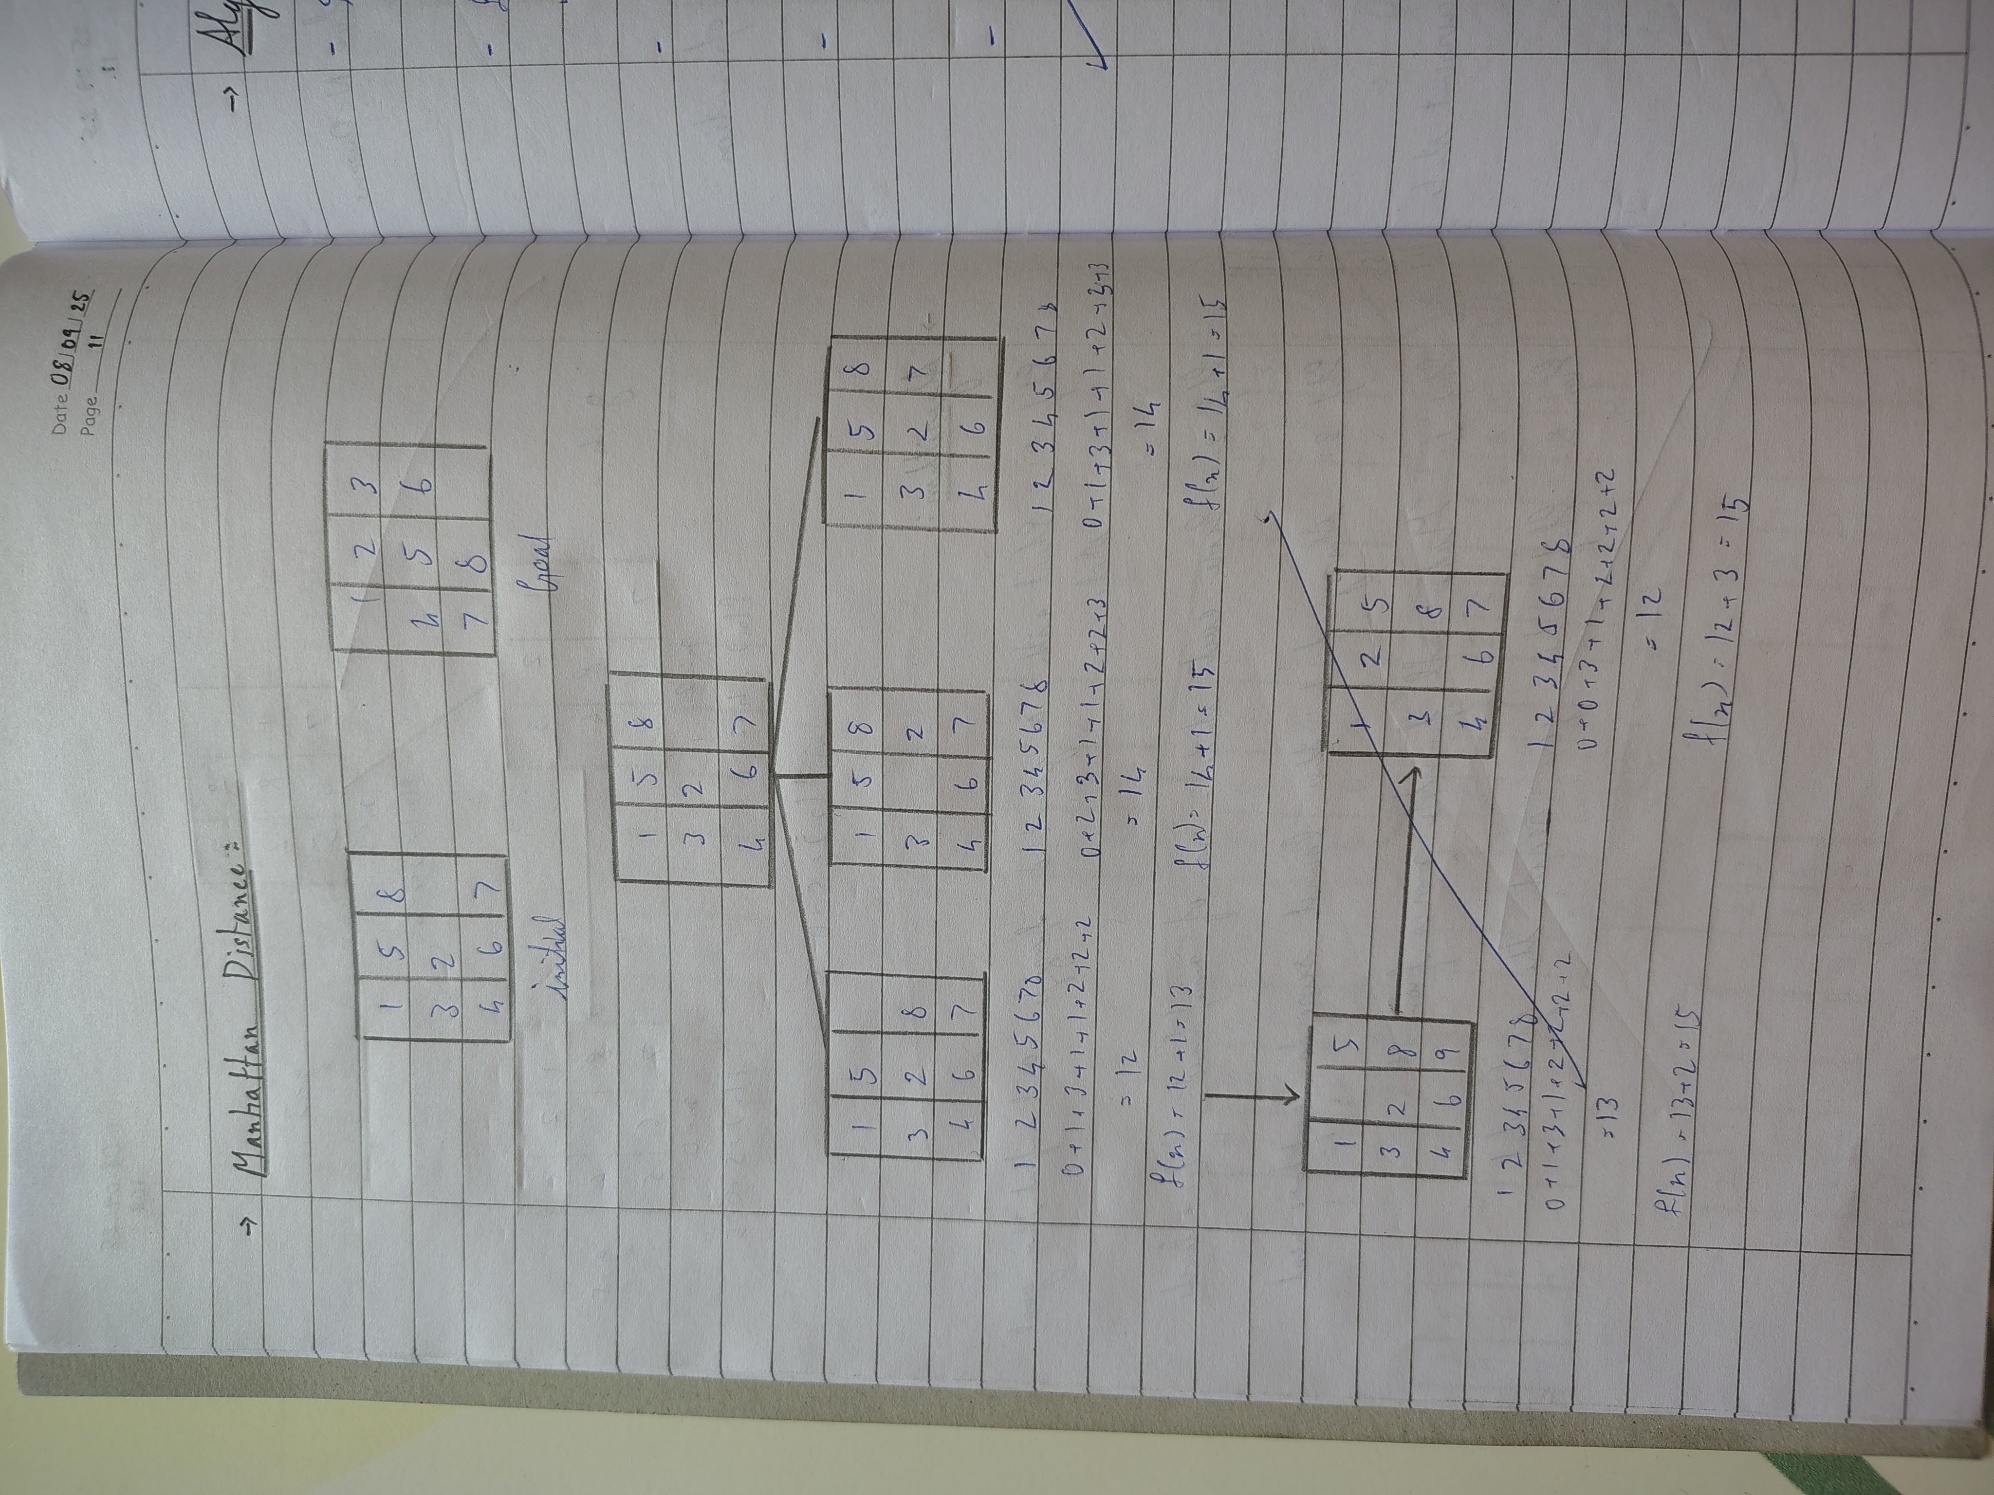 Date 08/09/25
Page 11
→ Manhattan Distance :
1 5 8
3 2
4 6 7
initial
1 2 3
4 5 6
7 8
Goal
1 5 8
3 2
4 6 7
1 5
3 2 8
4 6 7
1 5 8
3 2
4 6 7
1 5 8
3 2 7
4 6
1 2 3 4 5 6 7 8
0+1+3+1+1+2+2+2
= 12
f(n) = 12+1=13
1 2 3 4 5 6 7 8
0+2+3+1+1+2+2+3
= 14
f(n) = 14+1=15
1 2 3 4 5 6 7 8
0+1+3+1+1+2+3+3
= 14
f(n) = 14+1=15
1 5
3 2 8
4 6 9
1 2 3 4 5 6 7 8
0+1+3+1+2+2+2+2
=13
f(n) = 13+2=15
1 2 5
3 8
4 6 7
1 2 3 4 5 6 7 8
0+0+3+1+2+2+2+2
= 12
f(n) = 12+3=15
→
-
-
-
-
-